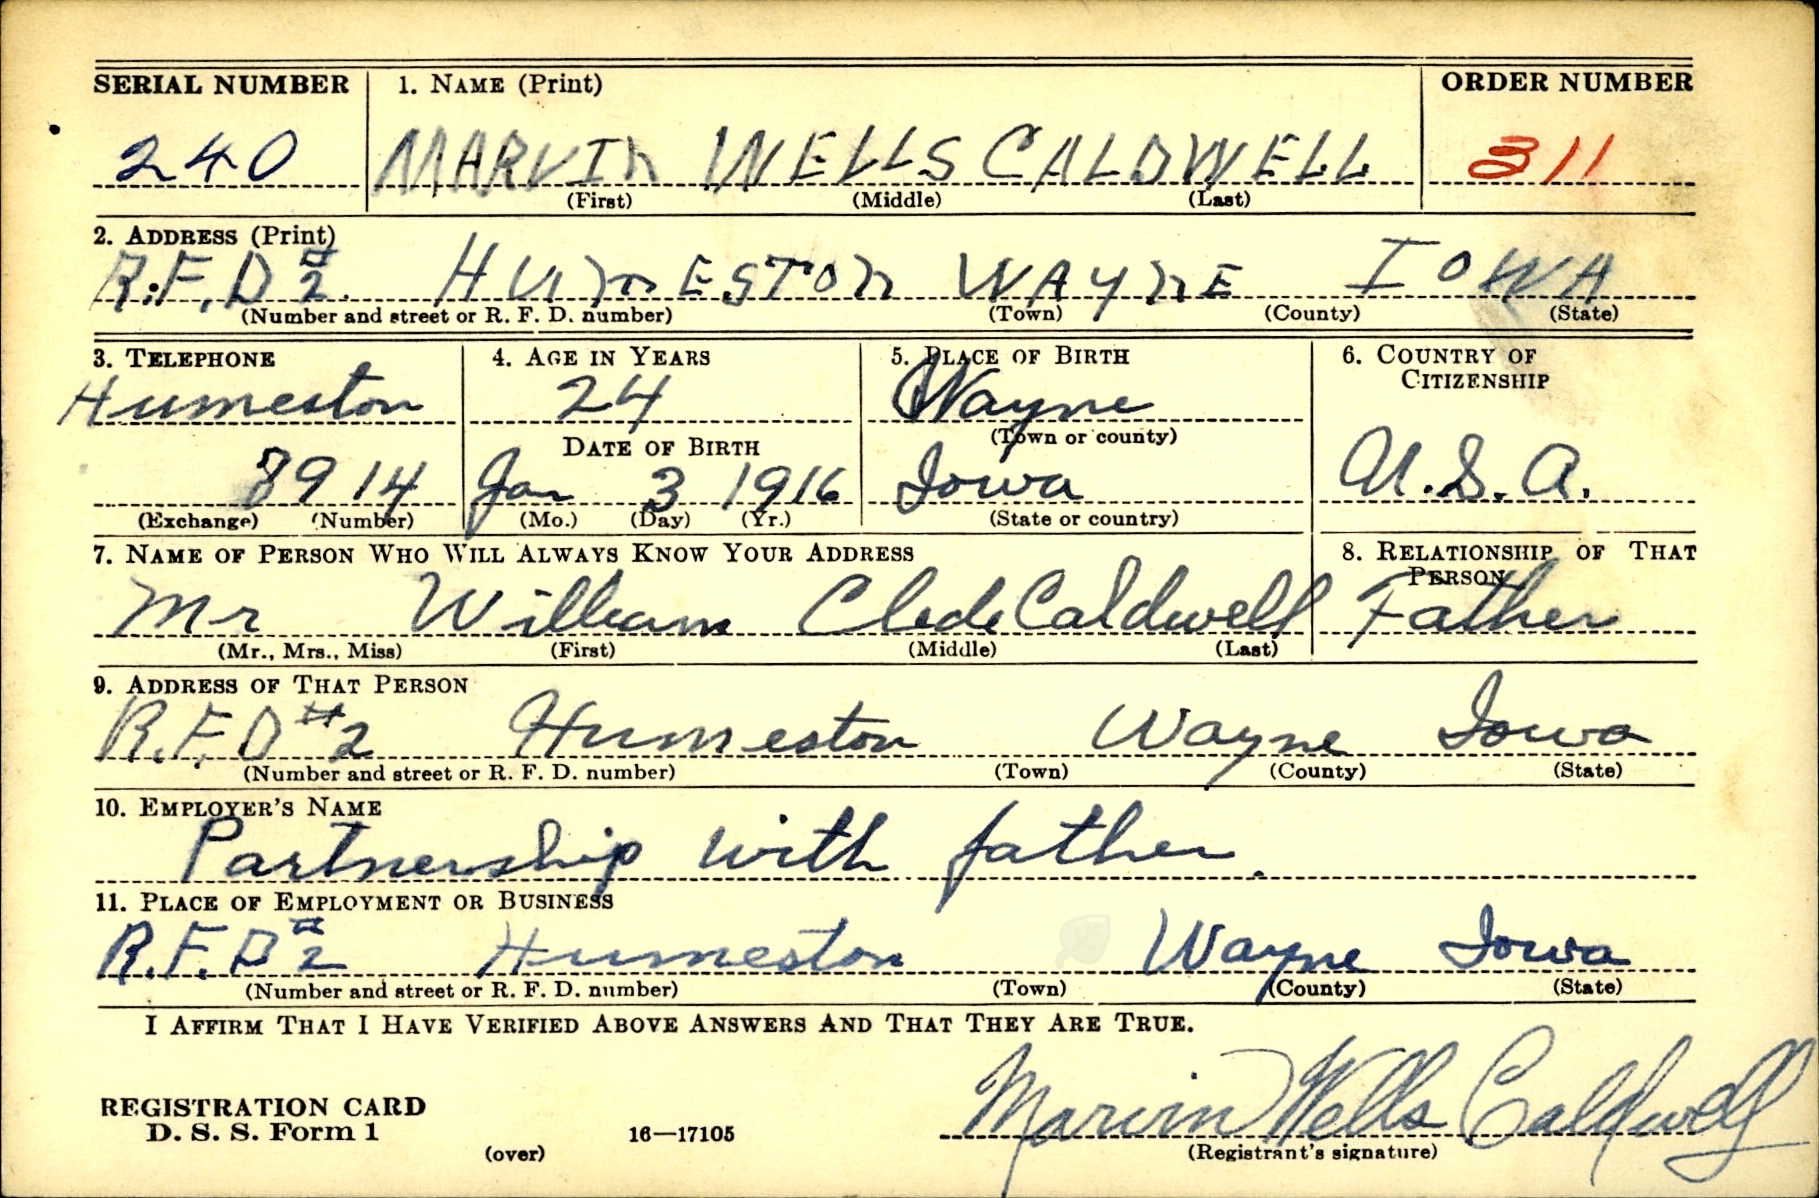 SERIAL NUMBER 1. NAME (Print) ORDER NUMBER
240 MARVIN WELLS CALDWELL 311
(First) (Middle) (Last)
2. ADDRESS (Print)
R.F.D #2. HUMESTON WAYNE IOWA
(Number and street or R. F. D. number) (Town) (County) (State)
3. TELEPHONE 4. AGE IN YEARS 5. PLACE OF BIRTH 6. COUNTRY OF
CITIZENSHIP
Humeston 24 Wayne
DATE OF BIRTH (Town or county)
8914 Jan 3 1916 Iowa U.S.A.
(Exchange) (Number) (Mo.) (Day) (Yr.) (State or country)
7. NAME OF PERSON WHO WILL ALWAYS KNOW YOUR ADDRESS 8. RELATIONSHIP OF THAT
PERSON
Mr William Clede Caldwell Father
(Mr., Mrs., Miss) (First) (Middle) (Last)
9. ADDRESS OF THAT PERSON
R.F.D #2 Humeston Wayne Iowa
(Number and street or R. F. D. number) (Town) (County) (State)
10. EMPLOYER'S NAME
Partnership with father.
11. PLACE OF EMPLOYMENT OR BUSINESS
R.F.D #2 Humeston Wayne Iowa
(Number and street or R. F. D. number) (Town) (County) (State)
I AFFIRM THAT I HAVE VERIFIED ABOVE ANSWERS AND THAT THEY ARE TRUE.
Marvin Wells Caldwell
REGISTRATION CARD
D. S. S. Form 1 16—17105
(over) (Registrant's signature)